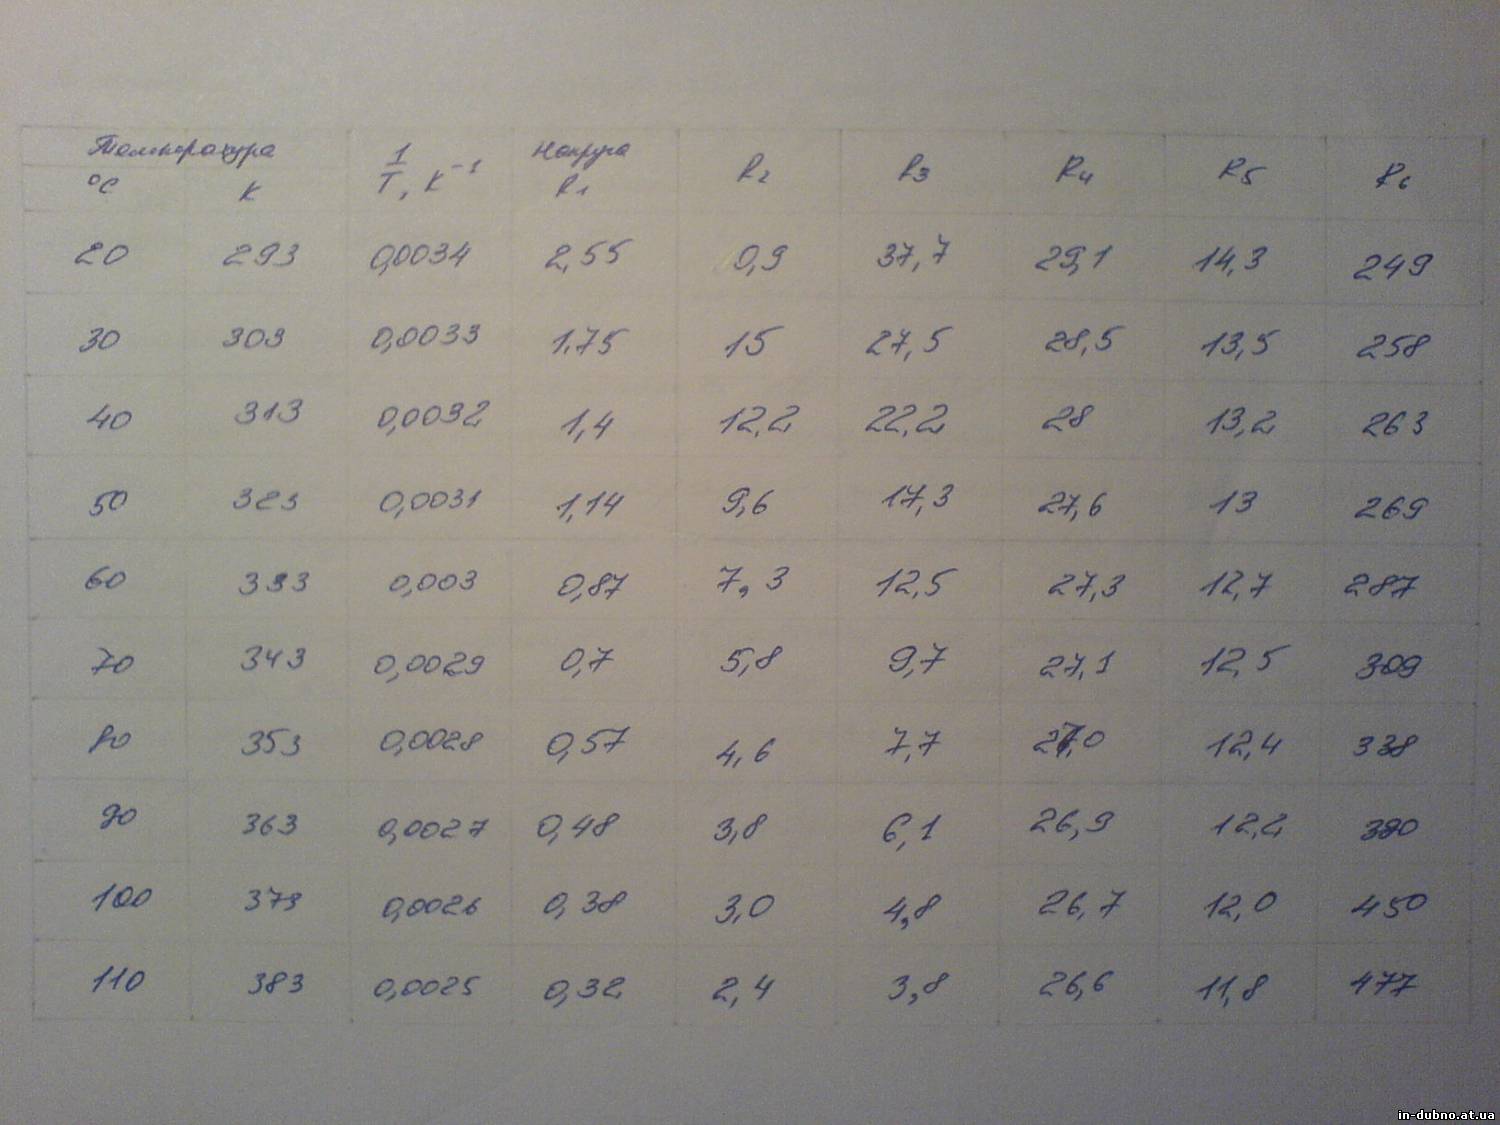 Температура 1/T, K⁻¹ Напруга
°C K R1 R2 R3 R4 R5 R6
20 293 0,0034 2,55 0,9 37,7 29,1 14,3 249
30 303 0,0033 1.75 15 27,5 28,5 13,5 258
40 313 0,0032 1,4 12,2 22,2 28 13,2 263
50 323 0,0031 1,14 9,6 17,3 27,6 13 269
60 333 0,003 0,87 7,3 12,5 27,3 12,7 287
70 343 0,0029 0,7 5,8 9,7 27,1 12,5 309
80 353 0,0028 0,57 4,6 7,7 27,0 12,4 338
90 363 0,0027 0,48 3,8 6,1 26,9 12,2 380
100 373 0,0026 0,38 3,0 4,8 26,7 12,0 450
110 383 0,0025 0,32 2,4 3,8 26,6 11,8 477
in-dubno.at.ua